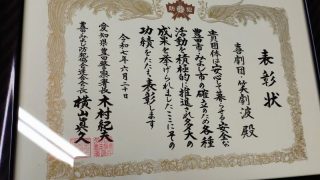 防犯
表彰状
喜劇団・笑劇波 殿
貴団体は安心して暮らせる安全な
豊田市・みよし市の確立のため各種
活動を積極的に推進され多大の
成果を挙げられましたここにその
功績をたたえ表彰します
令和七年六月二十日
愛知県豊田警察署長 木村紀夫
豊田みよし防犯協会連合会会長 横山真久